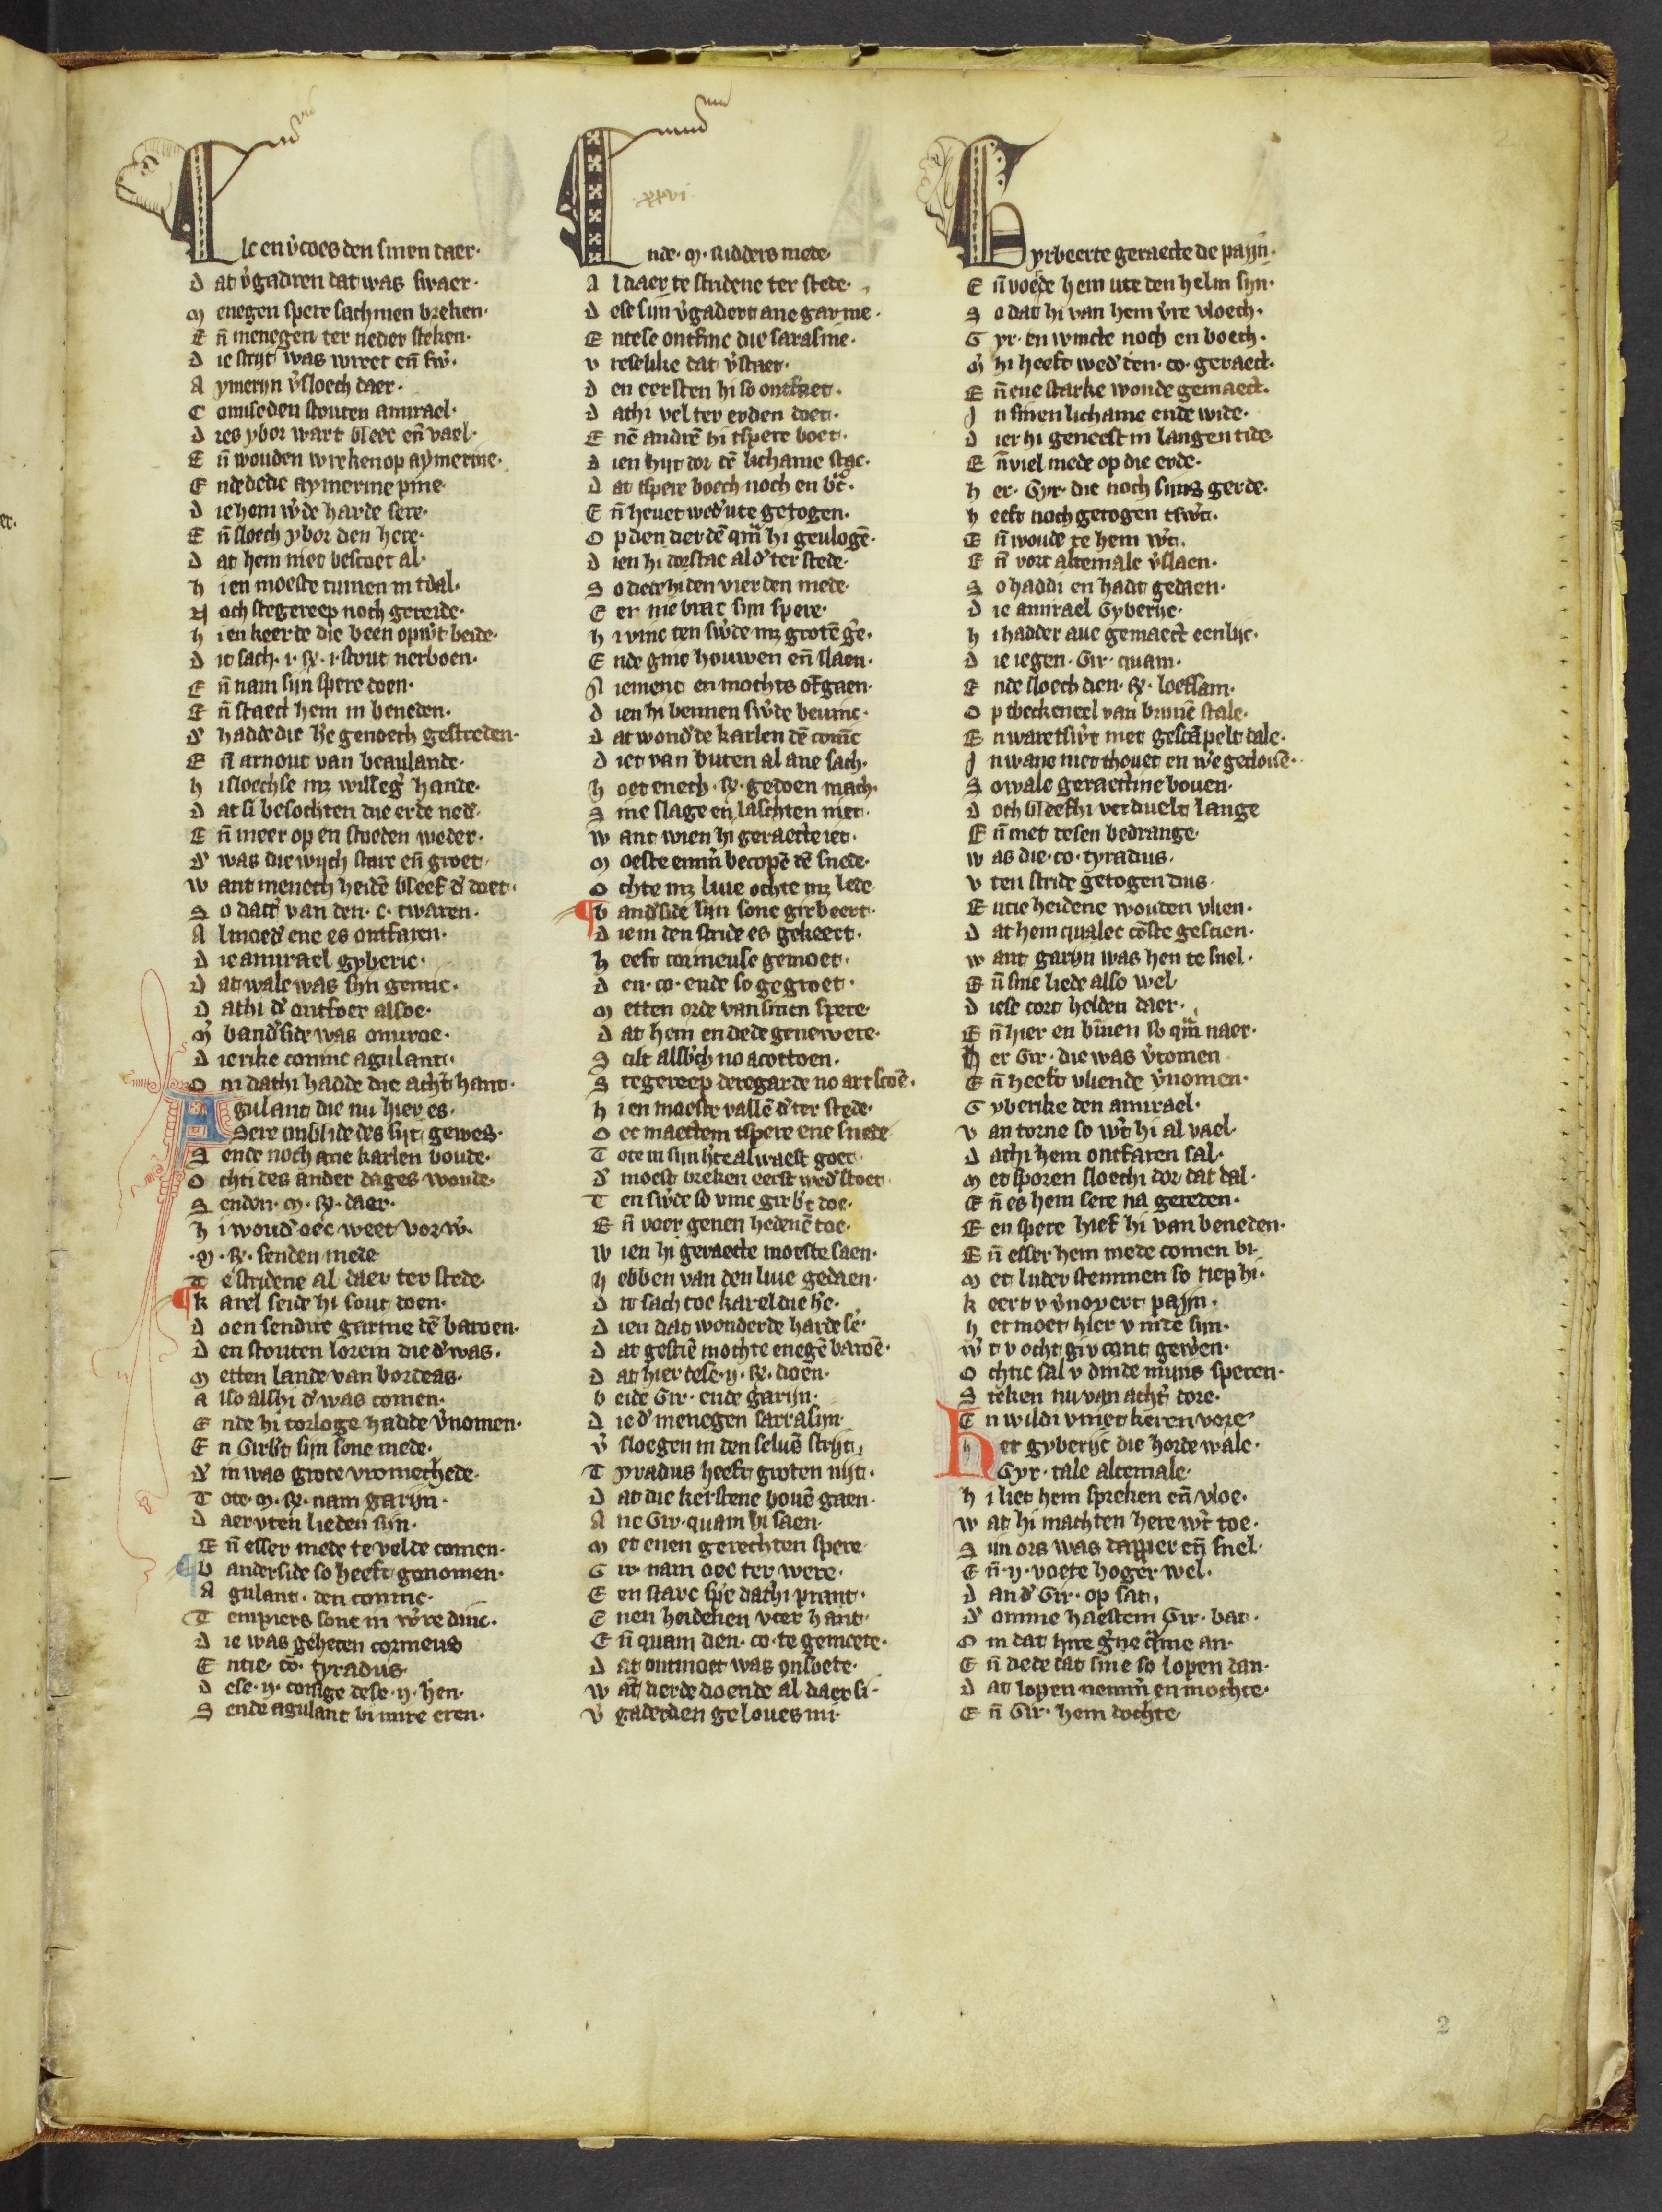 Elc en v͛coes den sinen daer·
D at v͛gadren dat was swaer·
M enegen spere sachmen breken·
E n̄ menegen ter neder steken·
D ie strijt was wreet en̄ sw͛·
A ymerijn v͛sloech daer·
C omuseden stouten amirael·
D ies ybor wart bleec en̄ vael·
E n̄ wouden wreken op aymerine·
E nde dede aymerine pine·
D ie hem w͛de harde sere·
E n̄ sloech ybor den here·
D at hem niet bestoet al·
H i en moeste tumen in tdal·
N och stegereep noch gereide·
H i en keerde die been opw͛t beide·
D it sach ·i· R͛· i· stout nerboen·
E n̄ nam sijn spere doen·
E n̄ staect hem in beneden·
D͛ hadde die he genoech gestreden·
E n̄ arnout van beaulande·
H i sloechse mz willeg͛ hande·
D at si besochten die erde ned͛·
E n̄ meer op en stoeden weder·
D͛ was die wijch starc en̄ groet·
W ant menech heidē bleef d͛ doet·
S o datt͛ van den ·c· twaren·
A lmoed͛ ene es ontfaren·
D ie amirael gyberic·
D at wale was sijn genuc·
D athi d͛ ontfoer alsoe·
M͛ band͛side was onuroe·
D ie rike coninc agulant·
O m dathi hadde die acht͛hant·
A gulant die nu hier es·
S ere onblide des sijt gewes·
S ende noch ane karlen boude·
O chti des ander dages woude·
S enden ·M· R͛· daer·
H i woud͛ oec weet vorw͛·
·M· R͛· senden mede
T e stridene al daer ter stede·
K arel seide hi sout doen·
D oen sendire garine dē baroen·
D en stouten lorein die d͛ was·
M etten lande van bordeas·
A lso alshi d͛ was comen·
E nde hi torloge hadde v͛nomen·
E n Girb͛t sijn sone mede·
D͛ in was grote vromechede·
T ote ·M· R͛· nam garijn·
D aer vten lieden sijn·
E n̄ esser mede te velde comen·
V anderside so heeft genomen·
A gulant· den coninc·
T empiers sone in w͛re dinc·
D ie was geheten cormeus
E ntie· cō· tyradus·
D ese ·ij· coninge dese ·ij· h͛en·
S ende agulant bi mire eren·
Ende ·M· ridders mede·
·xxvi·
A ldaer te stridene ter stede·
D ese sijn v͛gadert ane garine·
E ntese ontfinc die sarasine·
V reselike dat v͛staet·
D en eersten hi so ontfaet·
D athi vel ter erden doet·
E nē andrē hi tspere boet·
D ien hijt dor dē lichame stac·
D at tspere boech noch en brac·
E n̄ heuet wed͛ ute getogen·
O p dien derdē qua͛ hi geulogē·
D ien hi dorstac al d͛ ter stede·
S o dede hi den vierden mede·
E er nie brac sijn spere·
H i vinc ten sw͛de mz grotē ge͛·
E nde ginc houwen en̄ slaen·
N iement en mochts ofgaen·
D ien hi bennen sw͛de beuinc·
D at wond͛de karlen dē coninc
D iet van buten al ane sach·
H oet enech R͛· gedoen mach·
S ine slage en laschten niet·
W ant wien hi geraecte iet·
M oeste emm͛ becopē dē snede·
O chte mz liue ochte mz lede
V and͛side sijn sone girbeert·
D ie in den stride es gekeert·
H eeft cormeuse gemoet·
D en· co· ende so gegroet·
M etten orde van sinen spere·
D at hem en dede genewere·
S cilt alsb͛ch no acottoen·
S tegereep deregarde no artscoē·
H i en moeste vallē d͛ ter stede·
O ec maectem tspere ene snede
T ote in sijn h͛te al waest goet·
D͛ moest breken eerst wed͛stoet·
T en sw͛de so vinc girb͛t doe·
E n̄ voer genen hedenē toe·
W ien hi geraecte moeste saen·
H ebben van den liue gedaen·
D it sach toe karel die he͛·
D ien dat wonderde harde se͛·
D at gesciē mochte enegē baroē·
D at hier dese ·ij· R͛· doen·
B eide Gir· ende garijn·
D ie d͛ menegen sarrasijn·
V͛ sloegen in den seluē strijt·
T yradus heeft groten nijt·
D at die kerstene bouē gaen·
A ne Gir· quam hi saen·
M et enen gerechten spere·
G ir· nam oec ter were·
E en starc spe͛ dathi prant·
E nen heidenen vter hant·
E n̄ quam den· co· te gemoete·
D at ontmoet was onsoete·
W at͛ derde doende al daer si·
V͛ gaderden geloues mi·
Gyrbeerte geraecte de payijn·
E n̄ voerde hem ute den helm sijn·
S o dat hi van hem v͛re vloech·
G yr· en wincte noch en boech·
M͛ hi heeft wed͛ den· co· geraect·
E n̄ ene starke wonde gemaect·
I n sinen lichame ende wide·
D ier hi geneest in langen tide·
E n̄ viel mede op die erde·
H er· Gyr· die noch sijns gerde·
H eeft noch getogen tsw͛t·
E n̄ woude te hem w͛t·
E n̄ vort altemale v͛slaen·
S o haddi en hadt gedaen·
D ie amirael Gyberijc·
H i hadder aue gemaect eenlijc·
D ie iegen· Gir· quam·
E nde sloech dien· R͛· loefsam·
O p tbeckeneel van brunē stale·
E n waret sw͛t niet gescāpelt dale·
I n wane niet thouet en w͛e gecloue·
S o wale geraectine bouen·
D och bleefhi verduelt lange
E n̄ met desen bedrange·
W as die· co· tyradus·
V ten stride getogen dus·
E ntie heidene wouden vlien·
D at hem qualec cōste gescien·
W ant garijn was hen te snel·
E n̄ sine liede also wel·
D iese cort helden daer·
E n̄ hier en binnen so qua͛ naer·
H er Gir· die was v͛comen
E n̄ heeft vliende v͛nomen·
G yberike den amirael·
V an torne so w͛t hi al vael·
D athi hem ontfaren sal·
M et sporen sloechi dor dat dal·
E n̄ es hem sere na gereden·
E en spere hief hi van beneden·
E n̄ esser hem mede comen bi·
M et luder stemmen so riep hi·
K eert v v͛noyert payijn·
H et moet hier v inde sijn·
W͛ t v ocht giv cont gew͛en·
O chtic sal v dinde mijns speren·
S teken nu van acht͛ dore·
E n wildi v niet keren vore
H er gyberijc die horde wale·
Gyr· tale altemale·
H i liet hem spreken en̄ vloe·
W at hi machten here w͛t toe·
S ijn ors was dapper en̄ snel·
E n̄ ·ij· voete hoger wel·
D and͛ Gir· op sat·
D͛ omme haestem Gir· bat·
O m dat hire g͛ne q͛me an·
E n̄ dede dat sine so lopen dan·
D at lopen nemm͛ en mochte·
E n̄ Gir· hem dochte·
2